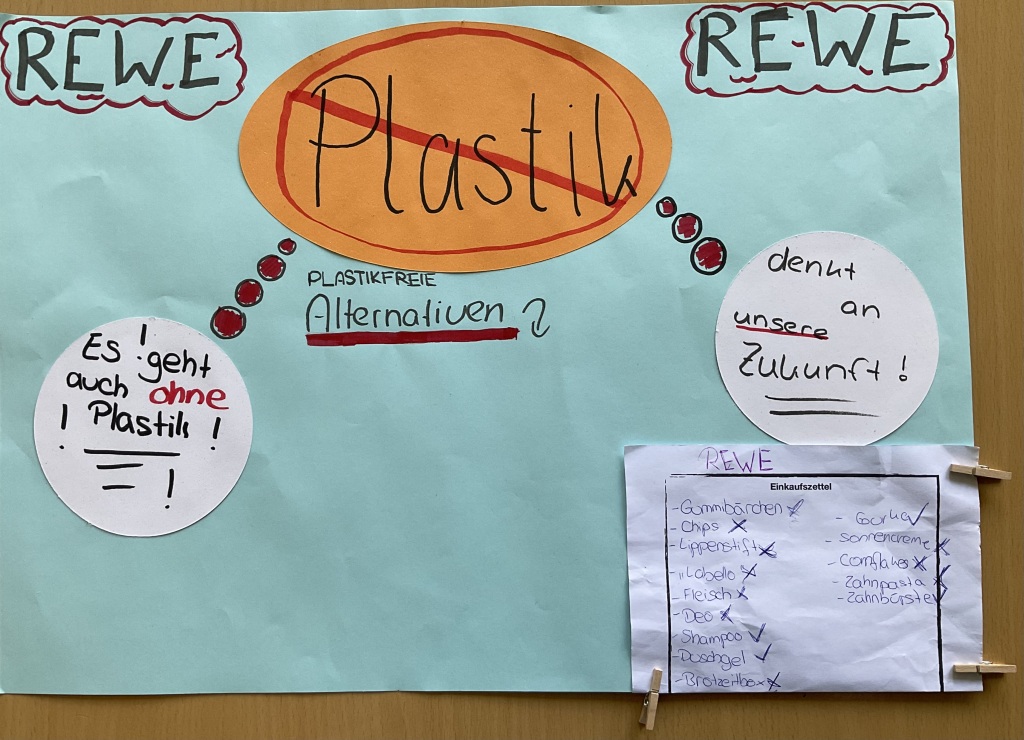 REWE
Plastik
REWE
PLASTIKFREIE
Alternativen
Es geht
auch ohne
! Plastik !
!
denkt
an
unsere
Zukunft!
REWE
Einkaufszettel
- Gummibärchen
- Chips x
- Lippenstift x
- "Labello x
- Fleisch x
- Deo x
- Shampoo ✓
- Duschgel ✓
- Brotzeitbox x
- Gurke ✓
- Sonnencreme x
- Cornflakes x
- Zahnpasta x
- Zahnbürste ✓